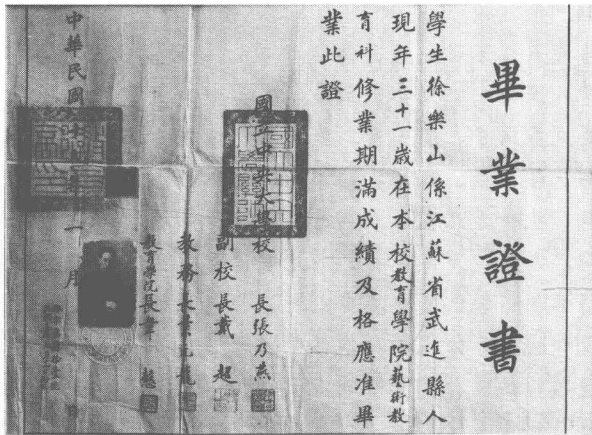 畢業證書
學生徐樂山係江蘇省武進縣人
現年三十一歲在本校教育學院藝術教
育科修業期滿成績及格應准畢
業此證
國立中央大學校長張乃燕
副校長戴超
教務長
教育學院長韋愨
中華民國
一月
日